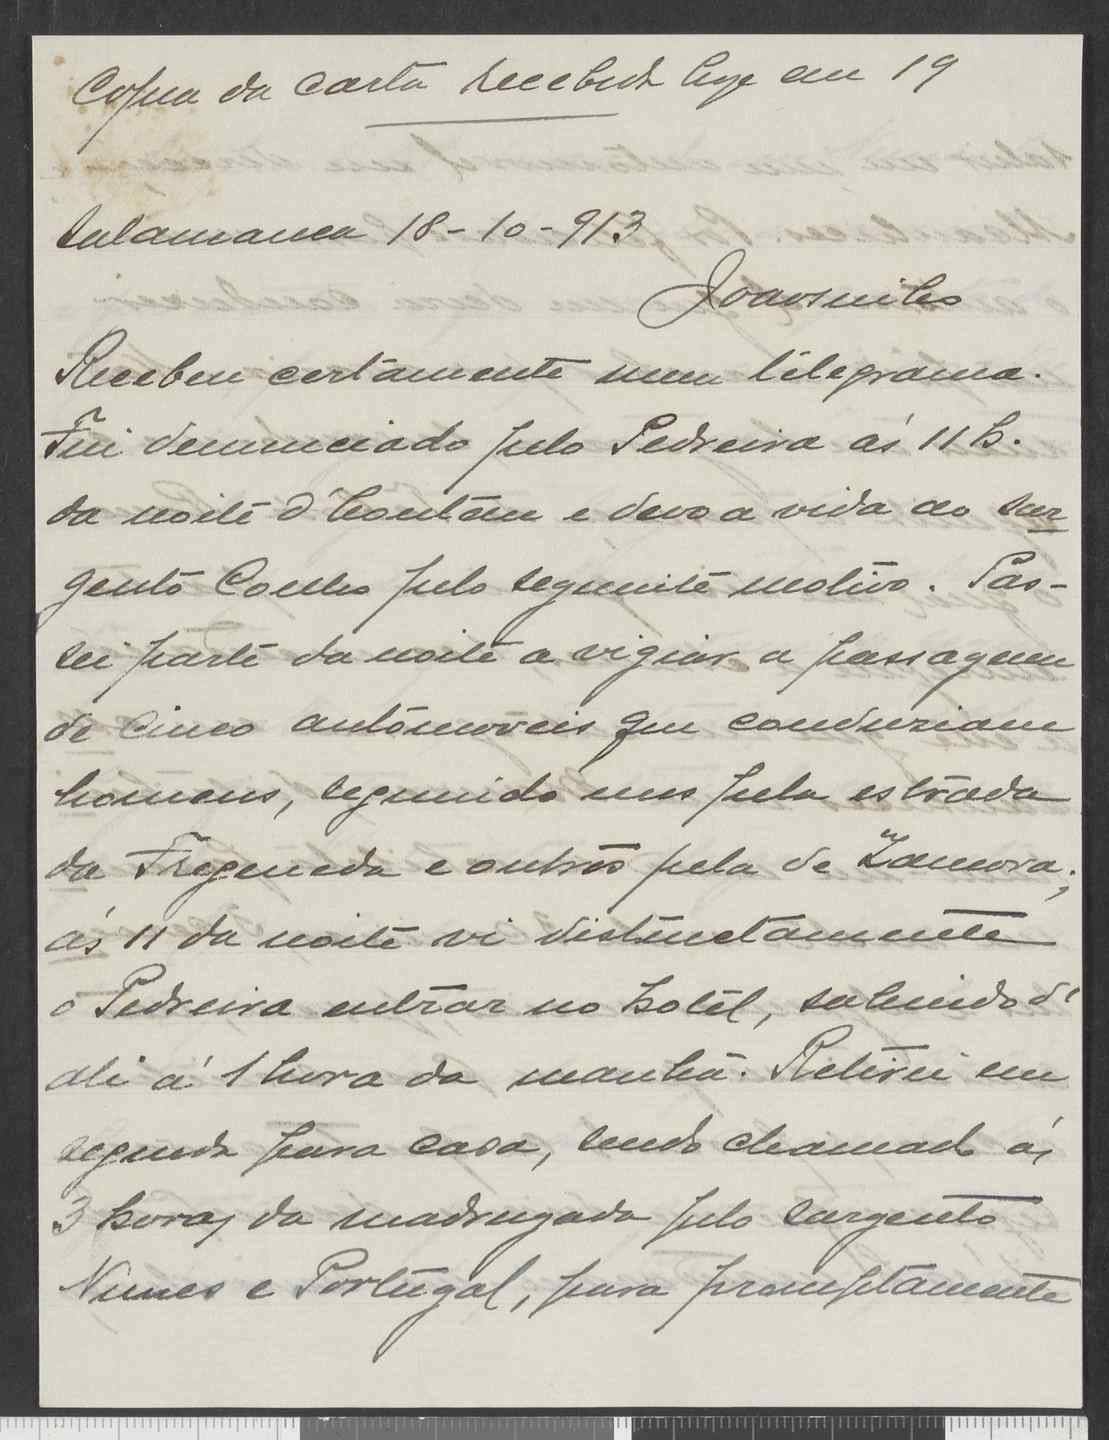 Copia da carta recebida hoje em 19
Salamanca 18-10-913
Joaosinho
Recebeu certamente meu telegrama.
Fui denunciado pelo Pedreira ás 11 h.
da noite d'hontem e devo a vida ao sar
gento Coelho pelo seguinte motivo. Pas-
sei parte da noite a vigiar a passagem
de cinco automoveis que conduziam
homens, seguindo uns pela estrada
da Fregeneda e outros pela de Zamora;
ás 11 da noite vi distinctamente
o Pedreira entrar no hotel, sahindo d'
ali á 1 hora da manhã. Retirei em
seguida para casa, sendo chamado ás
3 horas da madrugada pelo sargento
Nunes e Portugal, para promptamente